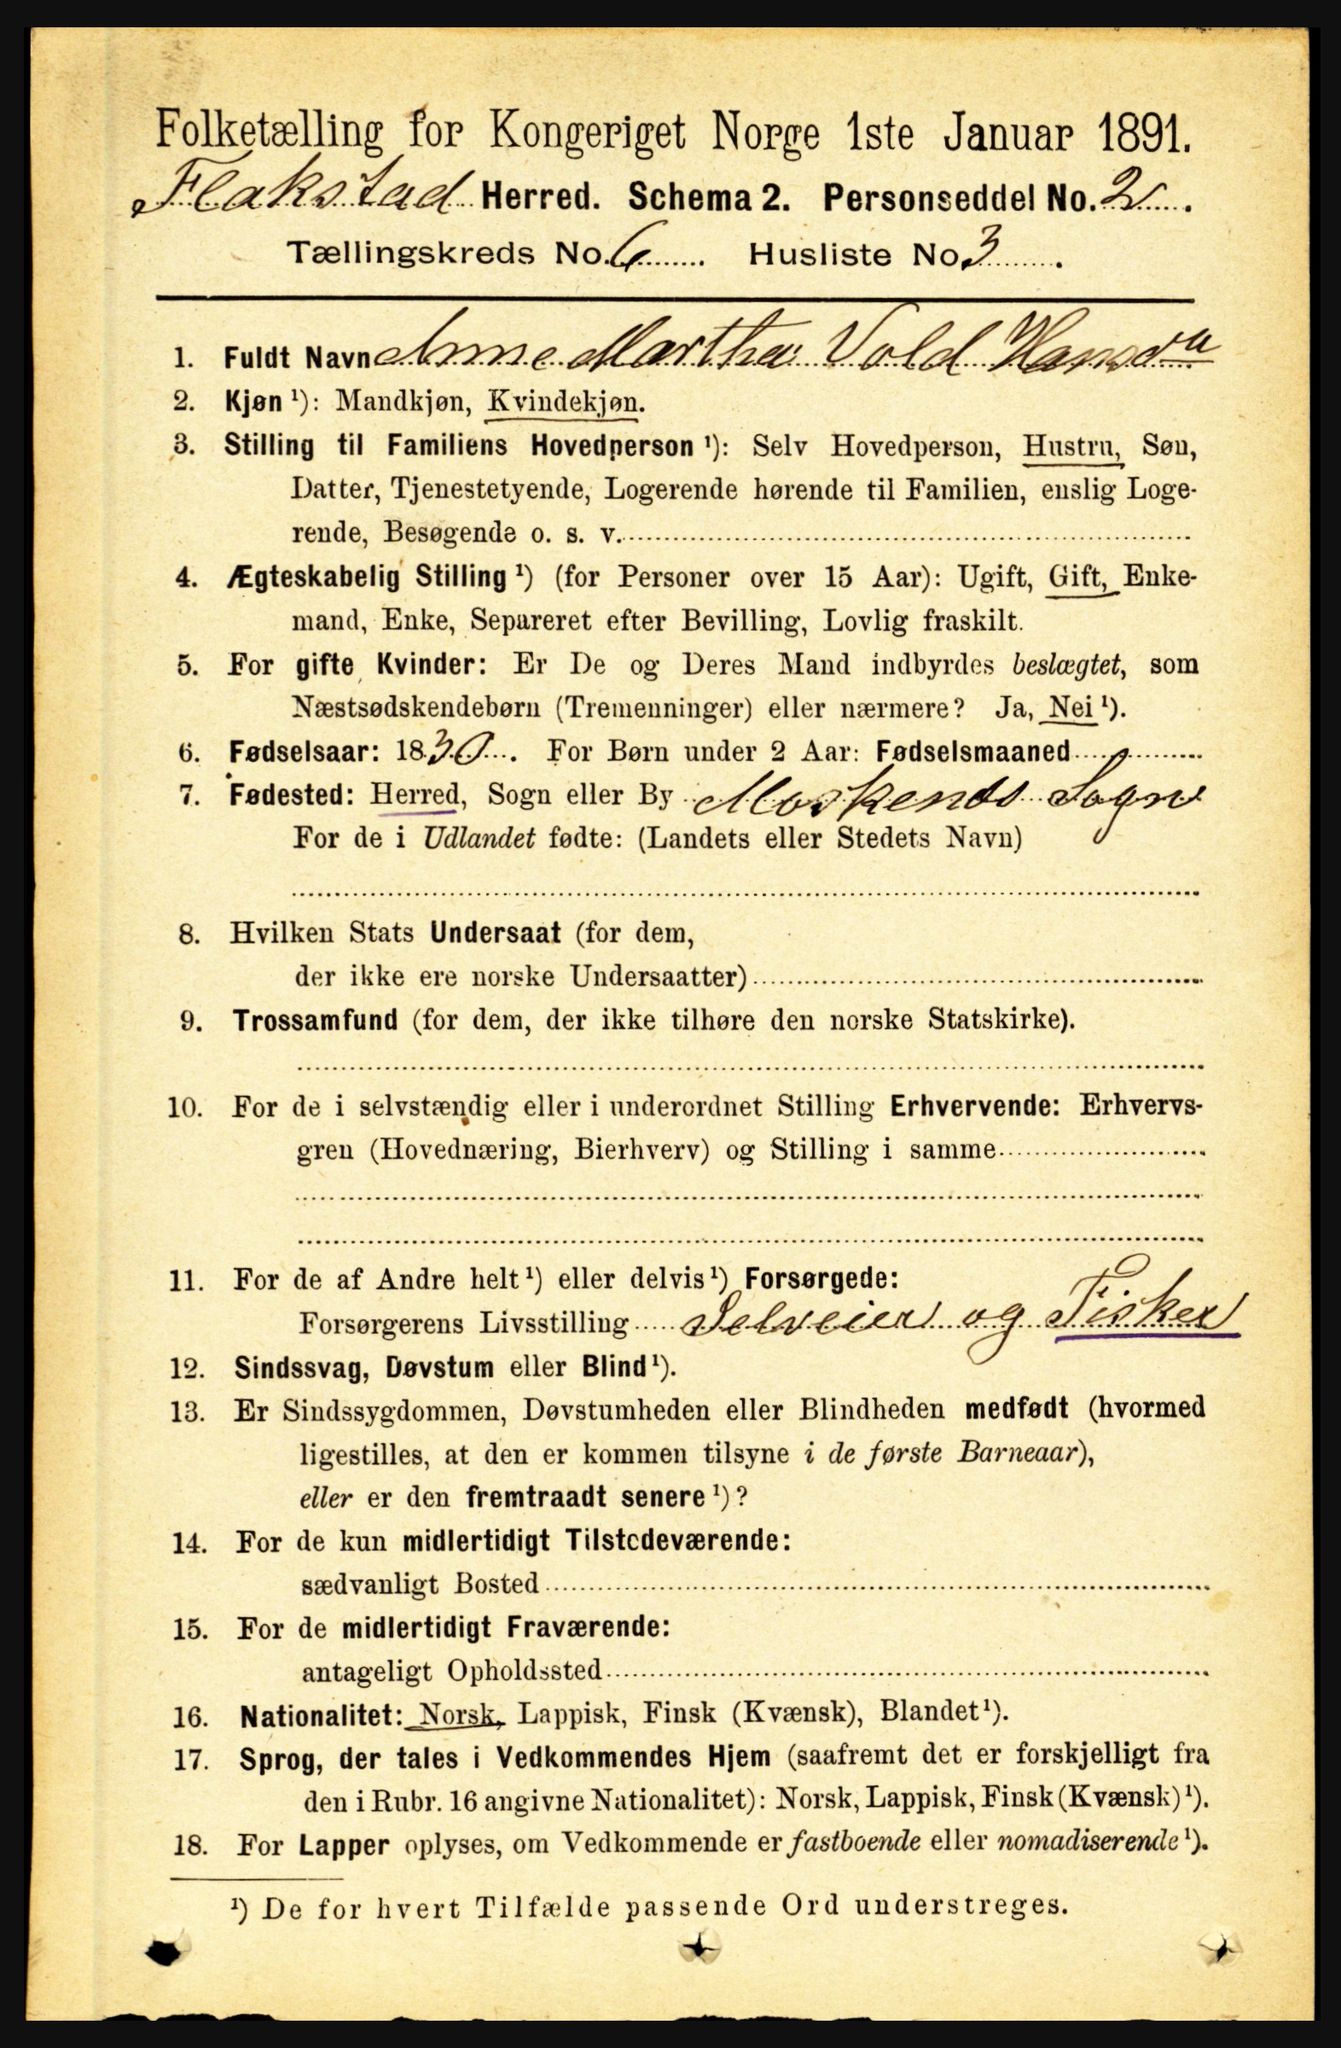 Folketælling for Kongeriget Norge 1ste Januar 1891.
Flakstad Herred. Schema 2. Personseddel No. 2.
Tællingskreds No. 6 Husliste No. 3.
1. Fuldt Navn Anne Martha Vold Hansda
2. Kjøn ¹): Mandkjøn, Kvindekjøn.
3. Stilling til Familiens Hovedperson ¹): Selv Hovedperson, Hustru, Søn,
Datter, Tjenestetyende, Logerende hørende til Familien, enslig Loge-
rende, Besøgende o. s. v.
4. Ægteskabelig Stilling ¹) (for Personer over 15 Aar): Ugift, Gift, Enke-
mand, Enke, Separeret efter Bevilling, Lovlig fraskilt.
5. For gifte Kvinder: Er De og Deres Mand indbyrdes beslægtet, som
Næstsødskendebørn (Tremenninger) eller nærmere? Ja, Nei ¹).
6. Fødselsaar: 1830. For Børn under 2 Aar: Fødselsmaaned
7. Fødested: Herred, Sogn eller By Moskenes Sogn
For de i Udlandet fødte: (Landets eller Stedets Navn)
8. Hvilken Stats Undersaat (for dem,
der ikke ere norske Undersaatter)
9. Trossamfund (for dem, der ikke tilhøre den norske Statskirke).
10. For de i selvstændig eller i underordnet Stilling Erhvervende: Erhvervs-
gren (Hovednæring, Bierhverv) og Stilling i samme
11. For de af Andre helt ¹) eller delvis ¹) Forsørgede:
Forsørgerens Livsstilling Selveier og Fisker
12. Sindssvag, Døvstum eller Blind ¹).
13. Er Sindssygdommen, Døvstumheden eller Blindheden medfødt (hvormed
ligestilles, at den er kommen tilsyne i de første Barneaar),
eller er den fremtraadt senere ¹)?
14. For de kun midlertidigt Tilstedeværende:
sædvanligt Bosted
15. For de midlertidigt Fraværende:
antageligt Opholdssted
16. Nationalitet: Norsk, Lappisk, Finsk (Kvænsk), Blandet ¹).
17. Sprog, der tales i Vedkommendes Hjem (saafremt det er forskjelligt fra
den i Rubr. 16 angivne Nationalitet): Norsk, Lappisk, Finsk (Kvænsk) ¹).
18. For Lapper oplyses, om Vedkommende er fastboende eller nomadiserende ¹).
¹) De for hvert Tilfælde passende Ord understreges.